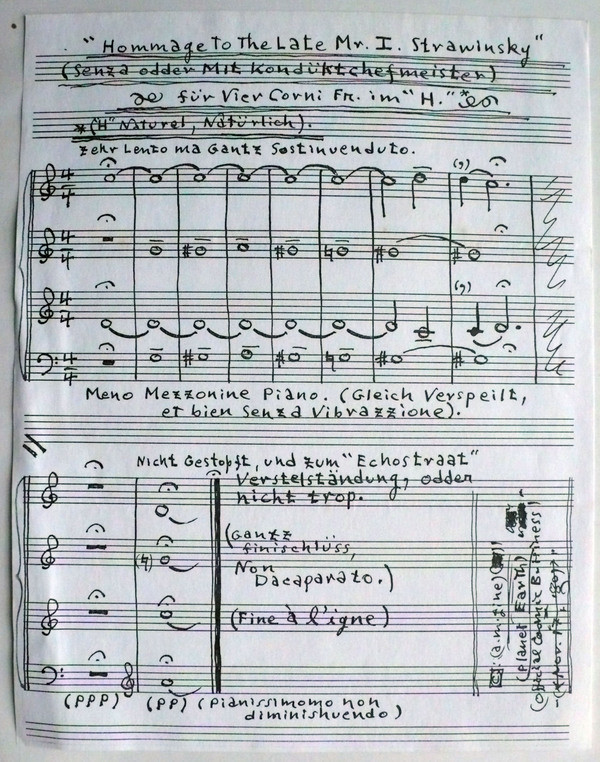 "Hommage To The Late Mr. I. Strawinsky"
(Senza odder Mit Kondüktchefmeister)
für Vier Corni Fr. im "H."
*("H" Naturel, Natürlich).
Zehr Lento ma Gantz Sostinuenduto.
4/4
(9)
4/4
4/4
(9)
4/4
Meno Mezzonine Piano. (Gleich Verspeilt,
et bien Senza Vibrazzione).
Nicht Gestopft, und zum "Echostraat"
Verstelständung, odder
nicht trop.
(Gantz
finischlüss,
Non
Dacaparato.)
(Fine à l'igne)
(a.m. fine)
(Planet Earth)
(Official Cosmic Buttiness)
(PPP) (PP) (Pianissimomo non
diminishuendo)